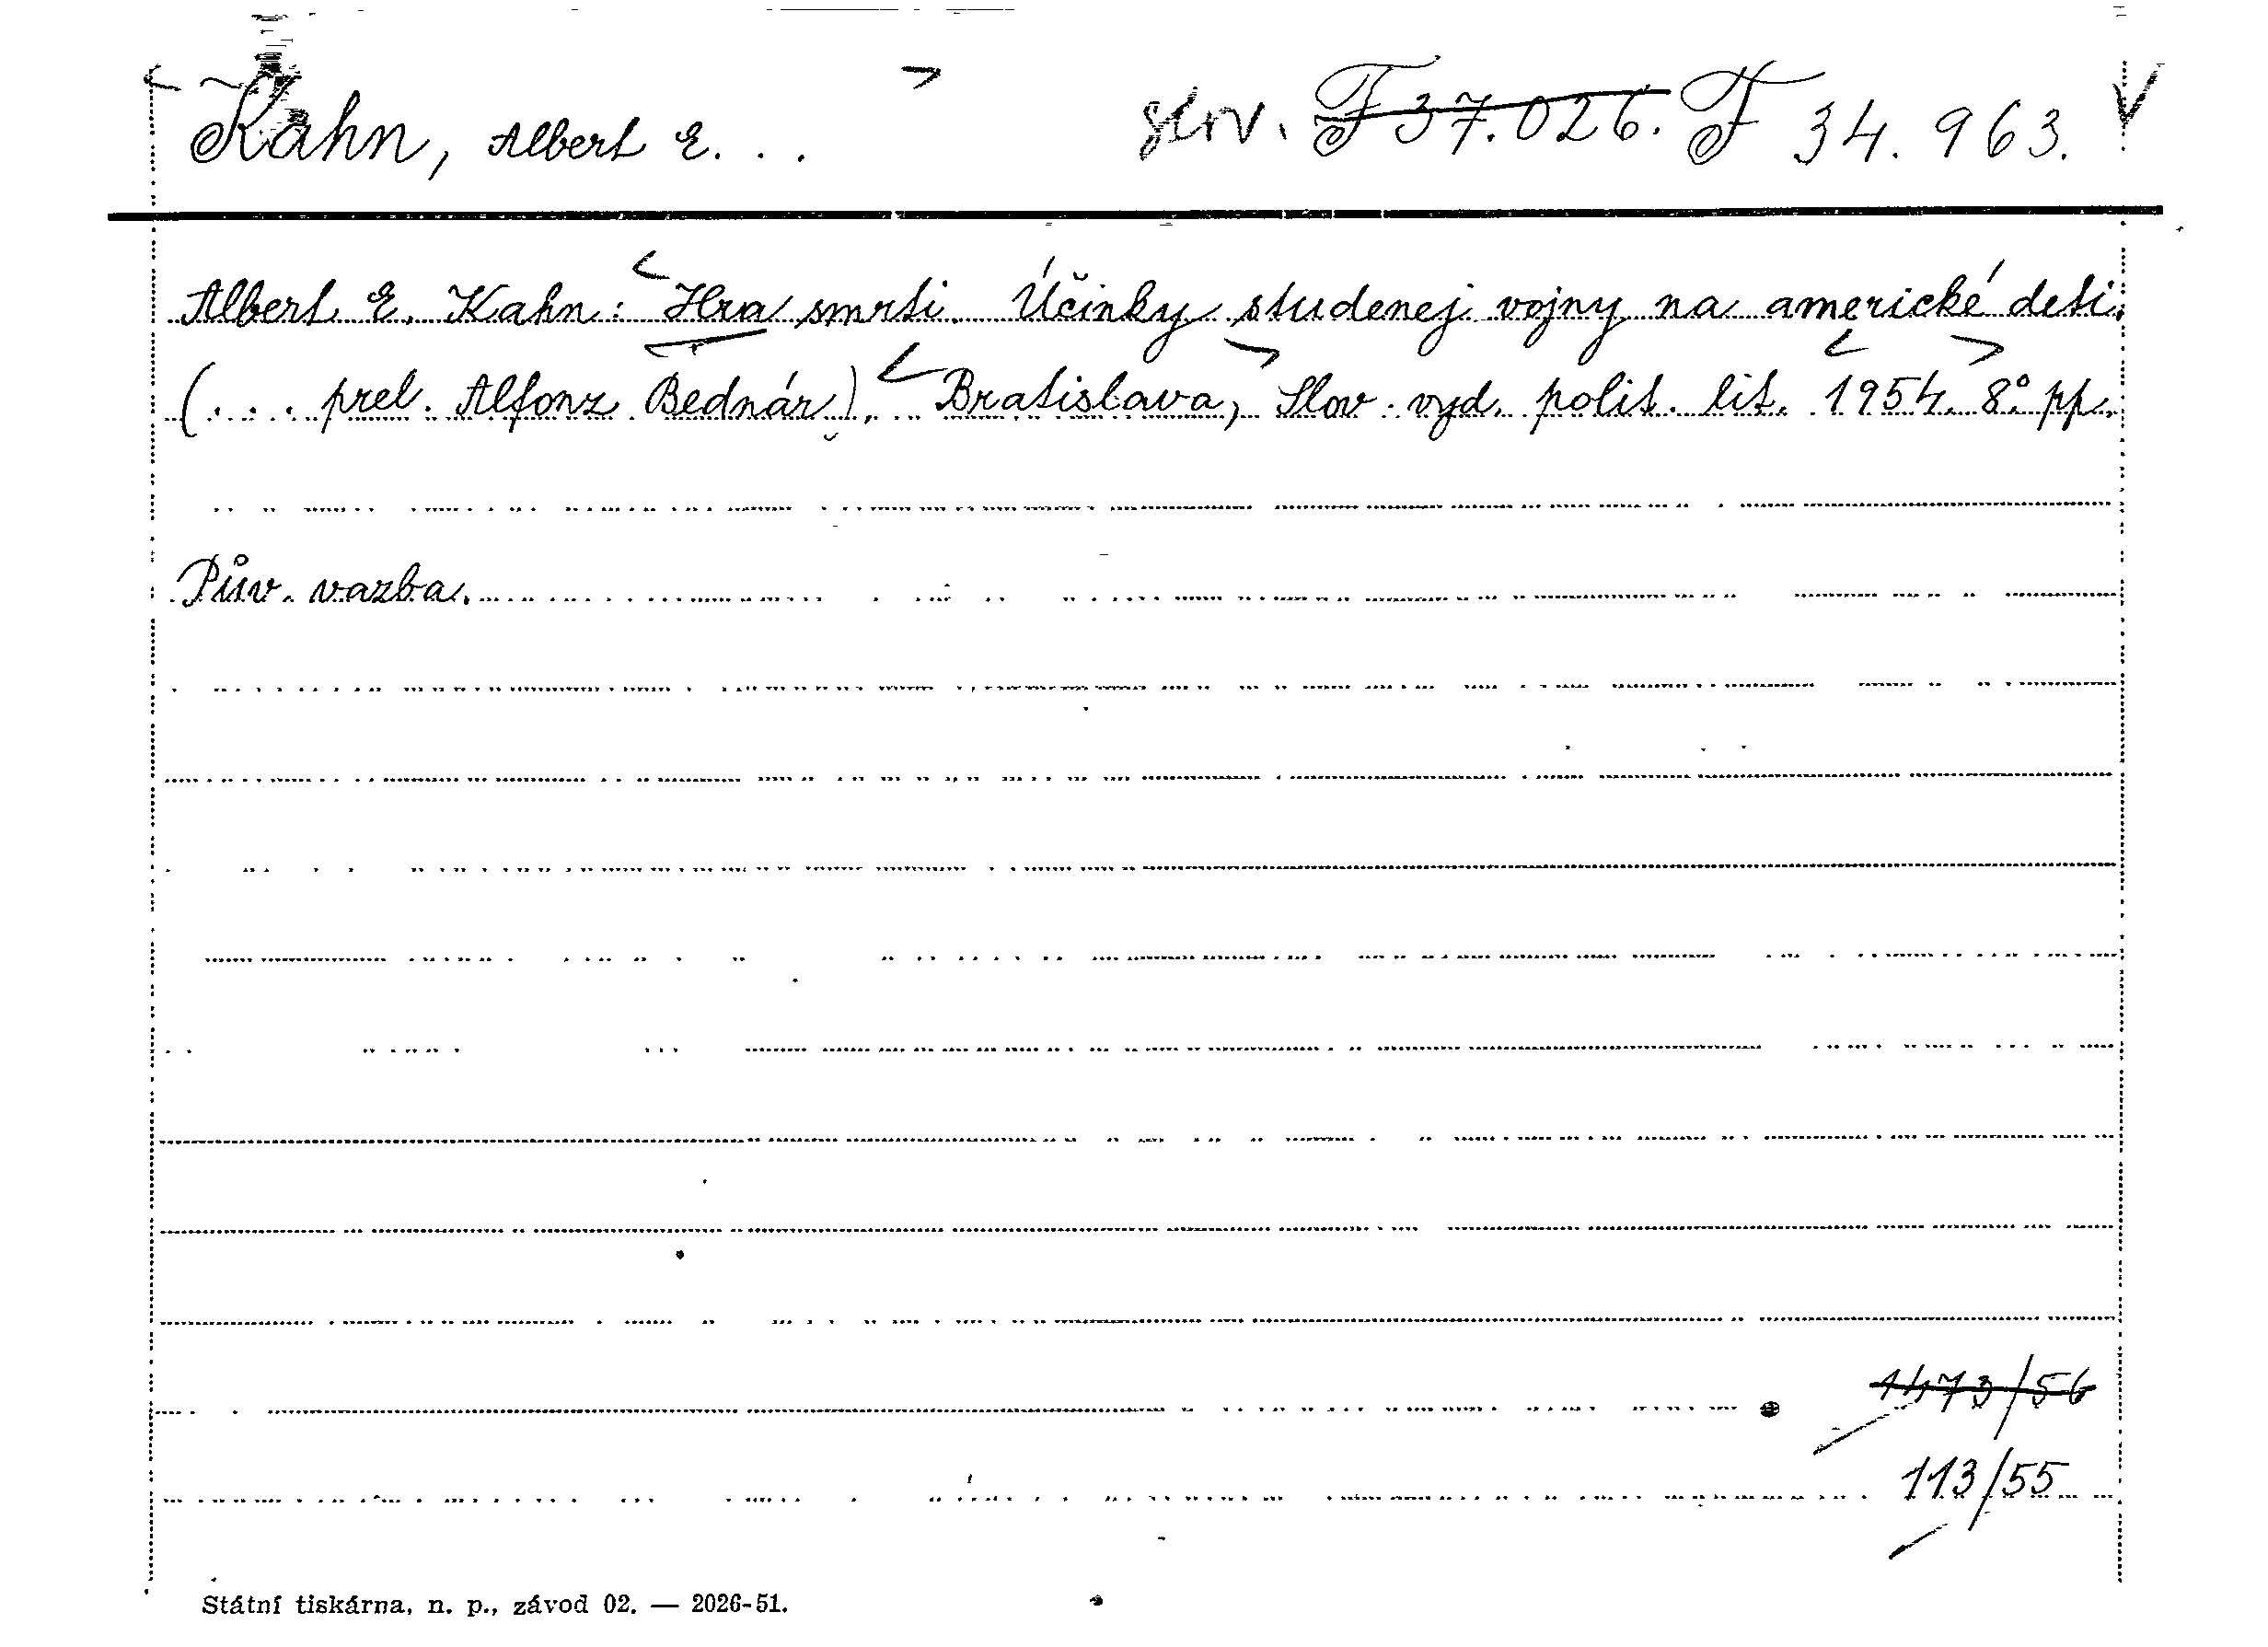 Kahn, Albert E. . . slov. F 37.026. F 34.963.
Albert E. Kahn: Hra smrti. Účinky studenej vojny na americké deti.
(. . . prel. Alfonz Bednár). Bratislava, Slov. vyd. polit. lit. 1954. 8° pp.
Pův. vazba.
1473/56
113/55
Státní tiskárna, n. p., závod 02. — 2026-51.